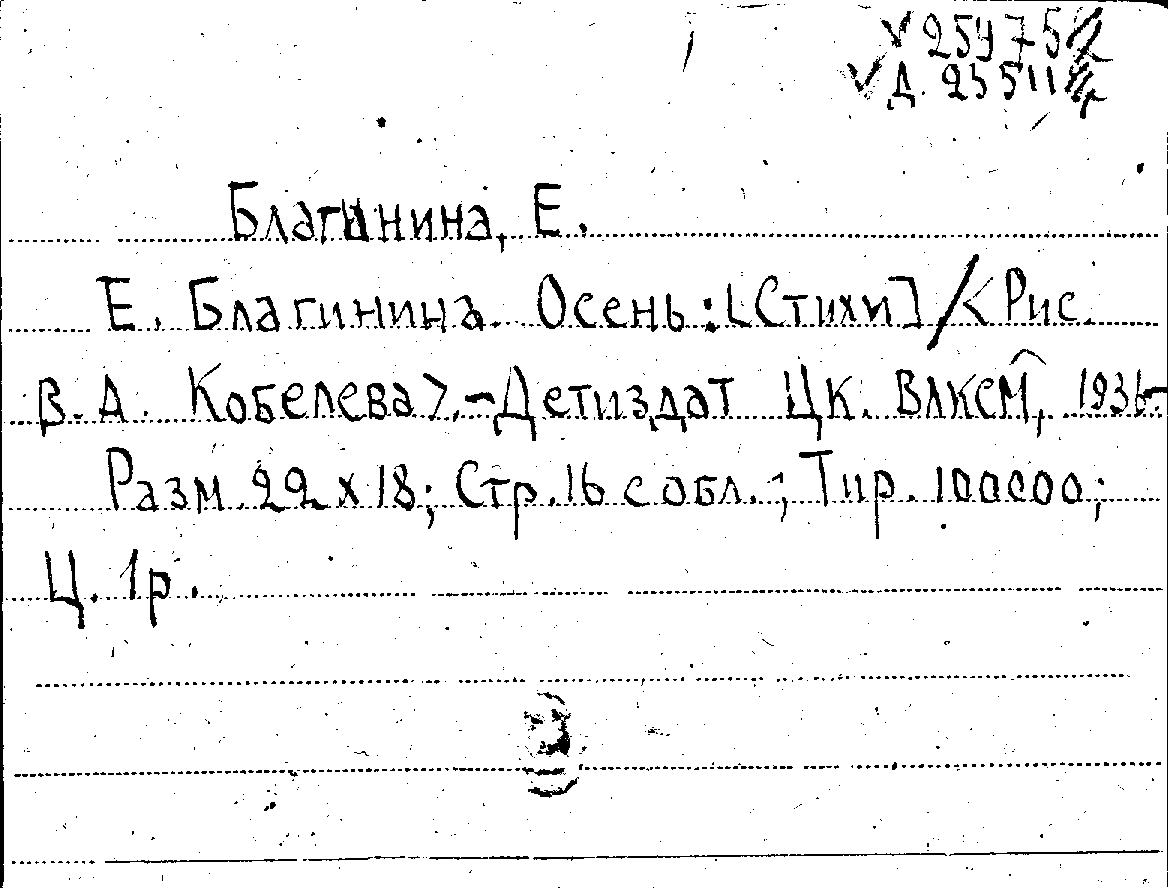 25975
Д. 25511
Благинина, Е.
Е. Благинина. Осень: [Стихи] / <Рис.
В. А. Кобелева>. - Детиздат ЦК. ВЛКСМ, 1936-
Разм. 22 х 18; Стр. 16 с обл.; Тир. 100000;
Ц. 1р.